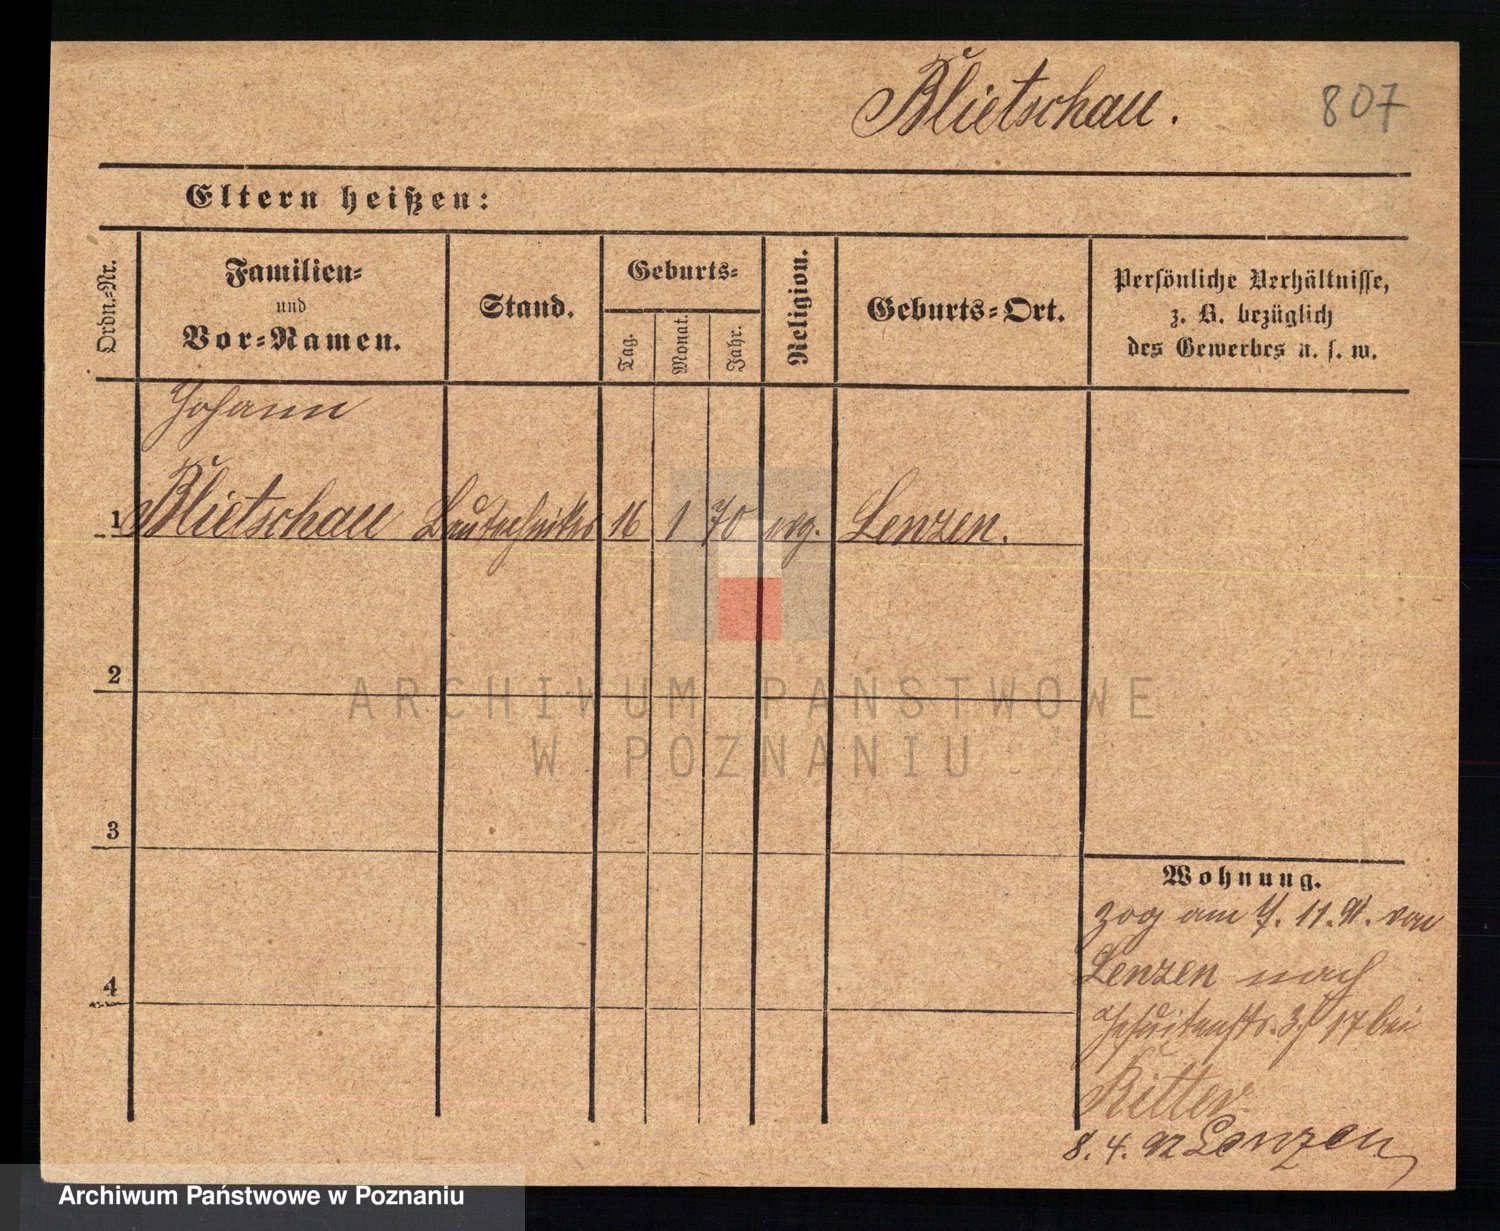 Blietschau.
807
Eltern heißen:
Ordn.-Nr.
Familien-
und
Vor-Namen.
Stand.
Geburts-
Tag.
Monat.
Jahr.
Religion.
Geburts-Ort.
Persönliche Verhältnisse,
z. B. bezüglich
des Gewerbes u. s. w.
Johann
1 Blietschau Bautechniker 16 1 70 evg. Lenzen.
2
3
4
Wohnung.
zog am 4. 11. 91. von
Lenzen nach
Jesuitenstr. 17 bei
Ritter
8. 4. 92 Lenzen
ARCHIWUM PAŃSTWOWE
W POZNANIU
Archiwum Państwowe w Poznaniu